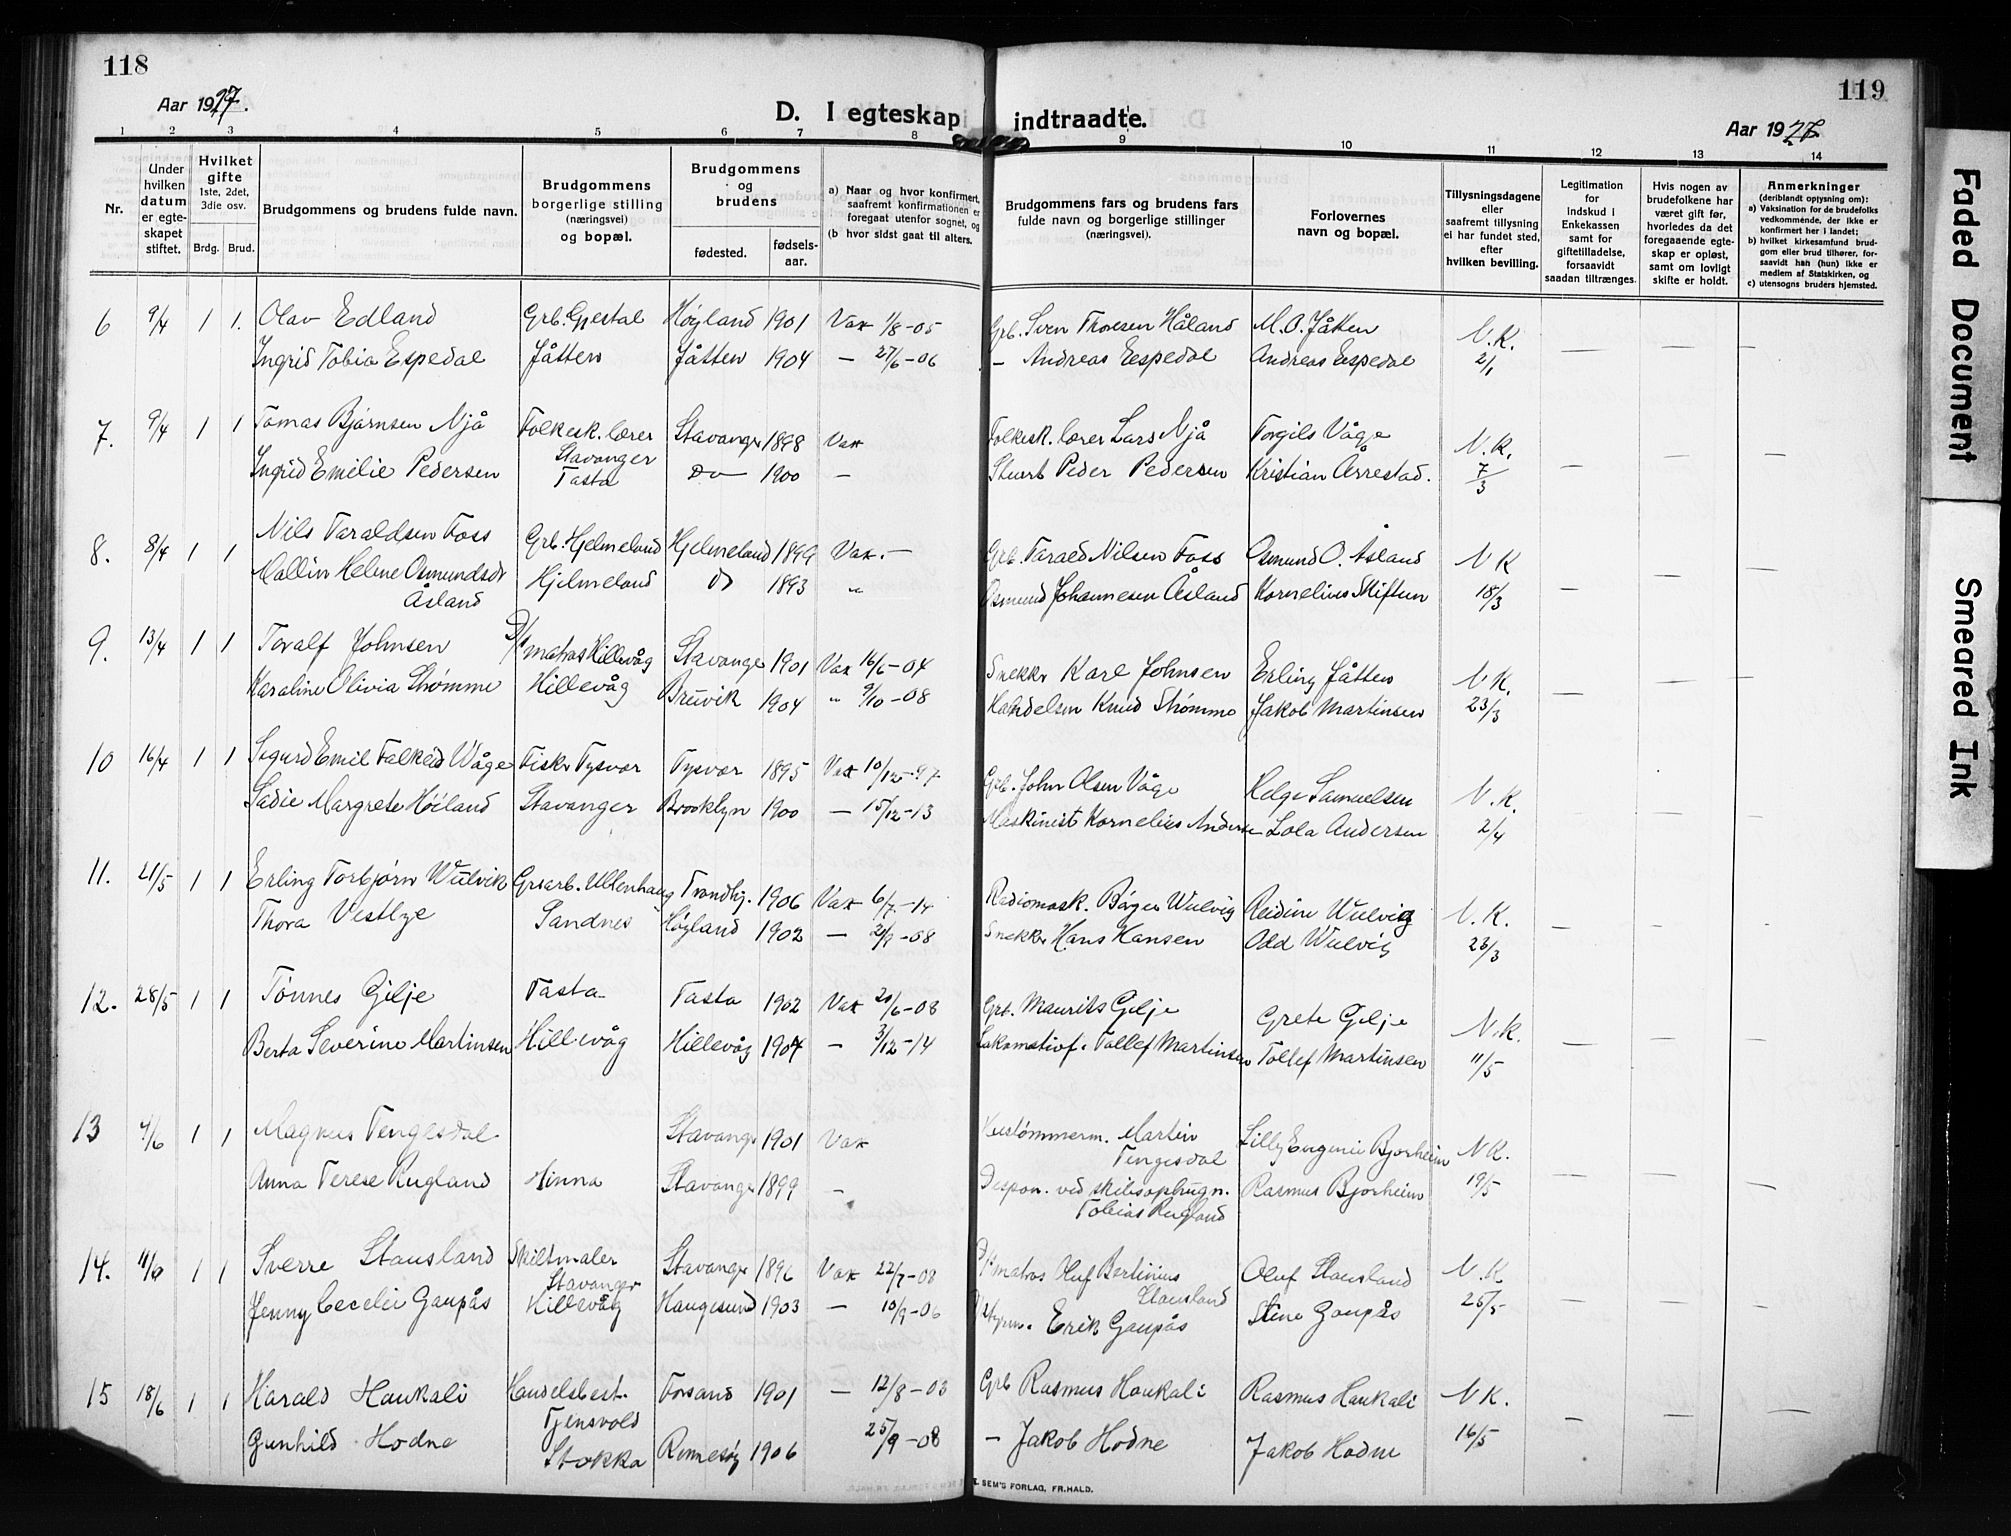 118
Aar 1927.
D. I egteskap indtraadte.
119
Aar 1927
1 2 3 4 5 6 7 8 9 10 11 12 13 14
Nr.
Under hvilken datum er egteskapet stiftet.
Hvilket gifte 1ste, 2det, 3die osv.
Brdg. Brud.
Brudgommens og brudens fulde navn.
Brudgommens borgerlige stilling (næringsvei) og bopæl.
Brudgommens og brudens
fødested. fødselsaar.
a) Naar og hvor konfirmert, saafremt konfirmationen er foregaat utenfor sognet, og
(b hvor sidst gaat til alters.
Brudgommens fars og brudens fars fulde navn og borgerlige stillinger (næringsvei).
Forlovernes navn og bopæl.
Tillysningsdagene eller saafremt tillysning ei har fundet sted, efter hvilken bevilling.
Legitimation for Indskud i Enkekassen samt for giftetilladelse, forsaavidt saadan tiltrænges.
Hvis nogen av brudefolkene har været gift før, hvorledes da det foregaaende egteskap er opløst, samt om lovligt skifte er holdt.
Anmerkninger (deriblandt opjysning om):
a) Vaksination for de brudefolks vedkommende, der ikke er konfirmert her i landet;
b) hvilket kirkesamfund brudgom eller brud tilhører, forsaavidt han (hun) ikke er medlem af Statskirken, og
c) utensogns bruders hjemsted.
6 9/4 1 1. Olav Edland Grb. Gjestal Høyland 1901 Vak 1/8-05 Grb. Sven Thorsen Håland M. O. Jåtten N. K.
Ingrid Tobia Espedal Jåtten Jåtten 1904 — 27/6-06 — Andreas Espedal Andreas Espedal 2/1 — — —
7. 9/4 1 1 Tomas Bjørnsen Njå Folkesk. lærer Stavanger Stavanger 1898 Vak Folkesk. lærer Lars Njå Torgils Våge N. K.
Ingrid Emilie Pedersen Tasta Do 1900 — Stuert Peder Pedersen Kristian Årrestad. 7/3 — — —
8. 8/4 1 1 Nils Taraldsen Foss Grb. Hjelmeland Hjelmeland 1899 Vak. — Grb. Tarald Nilsen Foss Osmund O. Åsland N K
Mallin Helene Osmundsdr Åsland Hjelmeland Do 1893 " Osmund Johannesen Åsland Kornelius Skiftun 18/3 — — —
9. 13/4 1 1 Toralf Johnsen D/s matros Hillevåg Stavanger 1901 Vak 16/6-04 Snekker Karl Johnsen Erling Jåtten N K.
Karoline Olivia Strømme Hillevåg Bruvik 1904 " 9/10-08 Handelsm Knud Strømme Jakob Martinsen 23/3 — — —
10 16/4 1 1 Sigurd Emil Falkeid Våge Fisker Tysvær Tysvær 1895 Vak 10/12-97 Grb. John Olsen Våge Helge Samuelsen N. K.
Sadie Margrete Høiland Stavanger Brooklyn 1900 — 15/12-13 Maskinist Kornelius Andersen Lola Andersen 2/4
11. 21/5 1 1 Erling Torbjørn Wulvik Grsarb. Ullenhaug Trondhj. 1906 Vak 6/7-14 Radiomask. Birger Wulvig Reidun Wulvig N. K.
Thora Vestlye Sandnes Høyland 1902 — 2/9-08 Snekker Hans Hansen Odd Wulvig 23/3 — —
12. 28/5 1 1 Tønnes Gilje Tasta Tasta 1902 Vak 20/6-08 Grb. Maurits Gilje Grete Gilje N. K.
Berta Severine Martinsen Hillevåg Hillevåg 1904 — 3/12-14 Lokomotivf. Tollef Martinsen Tollef Martinsen 11/5 — — —
13 4/6 1 1 Magnus Tengesdal Stavanger 1901 Vak Hustømmerm. Martin Tengesdal Lilly Eugenie Bjorheim N K.
Anna Terese Rugland Hinna Stavanger 1899 — Dispon. ved skibsophugn. Tobias Rugland Rasmus Bjorheim 19/5 — — —
14. 11/6 1 1 Sverre Stausland Skiltmaler Stavanger Stavanger 1896 Vak 22/7-08 D/s matros Oluf Bertinius Stausland Oluf Stausland N. K
Jenny Cecelie Gaupås Hillevåg Haugesund 1903 — 10/9-06 Erik Gaupås Stine Gaupås 25/5 — — —
15 18/6 1 1 Harald Haukali Handelsbest. Tjensvold Forsand 1901 — 12/8-03 Grb Rasmus Haukali Rasmus Haukali N K.
Gunhild Hodne Stokka Rennesøy 1906 25/9-08 — Jakob Hodne Jakob Hodne 16/5 — — —
E. SEM'S FORLAG, FR.HALD.
Faded Document
Smeared Ink